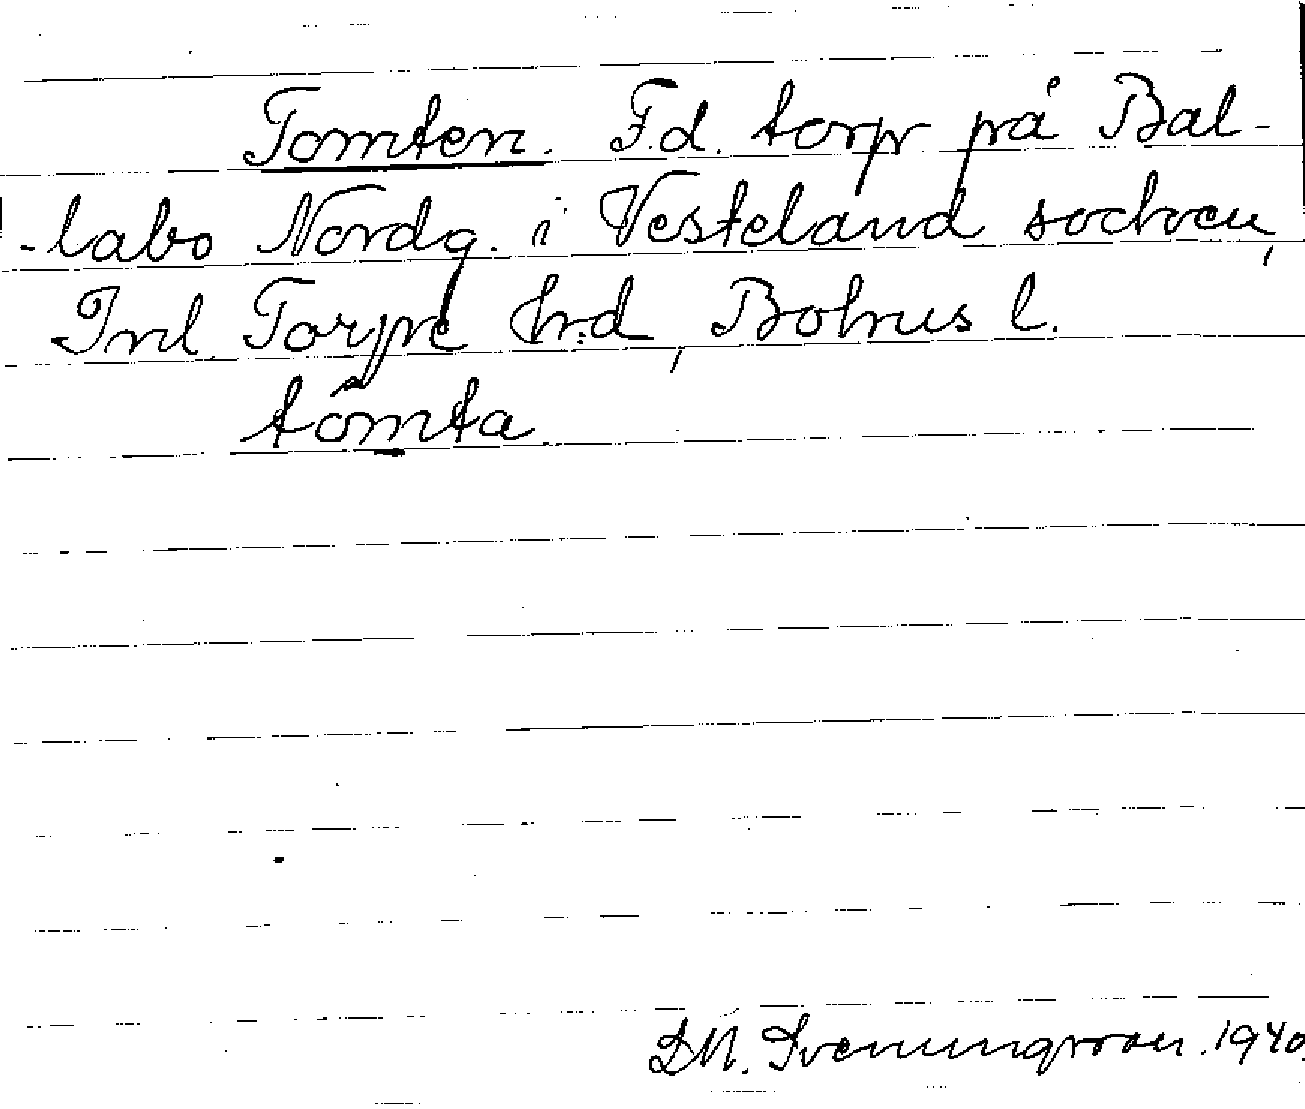 Tomten. F.d. torp på Bal-
-labo Nordg. i Vesteland socken,
Inl. Torpe hrd, Bohus l.
tômta
D.M. Svenningsson. 1940.